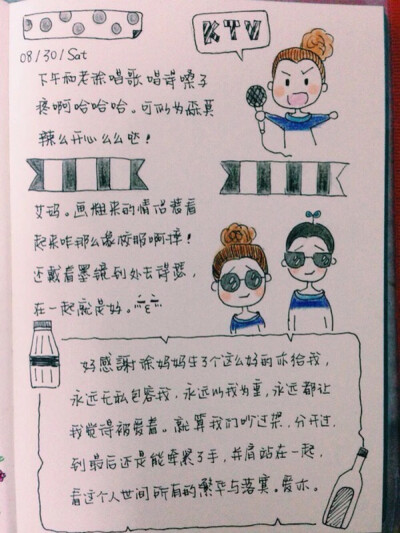 KTV
08/30/Sat
下午和老徐唱歌唱得嗓子
疼啊哈哈哈。可以为森莫
辣么开心么么哒！
艾玛。画粗来的情侣装看
起来咋那么像奶奶啊摔！
还戴着墨镜到处去得瑟，
在一起就是好。
好感謝徐妈妈生了个这么好的你给我，
永远无私包容我，永远以我为重，永远都让
我觉得被爱着。就算我们吵过架，分开过，
到最后还是能牵累了手，并肩站在一起，
看这个人世间所有的繁华与落寞。爱你。